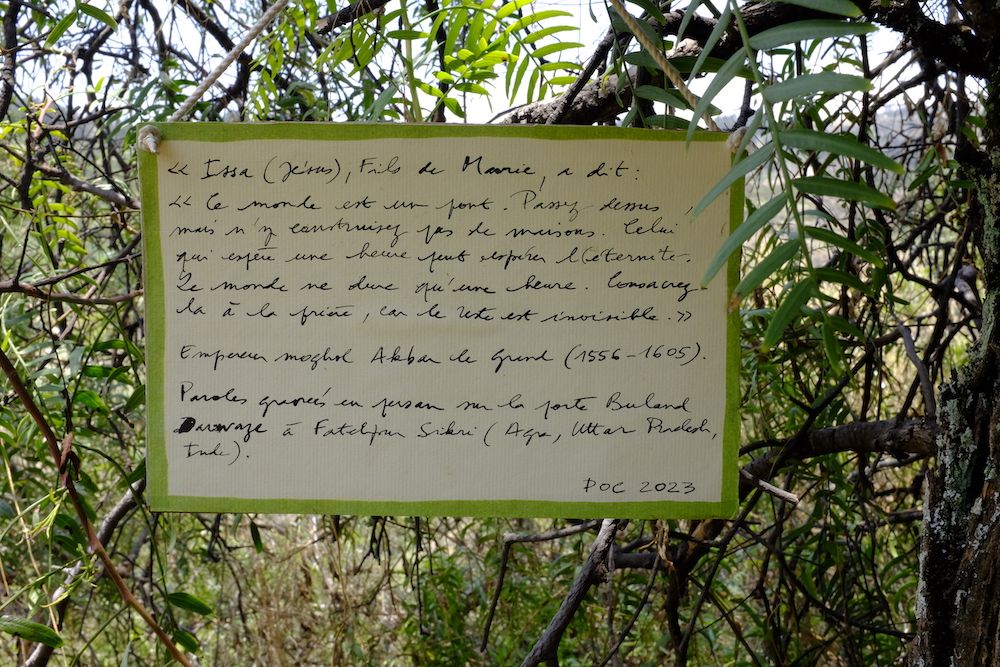 « Issa (Jésus), Fils de Marie, a dit :
« Ce monde est un pont. Passez dessus,
mais n'y construisez pas de maisons. Celui
qui espère une heure peut espérer l'éternité.
Le monde ne dure qu'une heure. Consacrez-
la à la prière, car le reste est invisible. »
Empereur moghol Akbar le Grand (1556-1605).
Paroles gravées en persan sur la porte Buland
Darwaze à Fatehpur Sikri (Agra, Uttar Pradesh,
Inde).
POC 2023